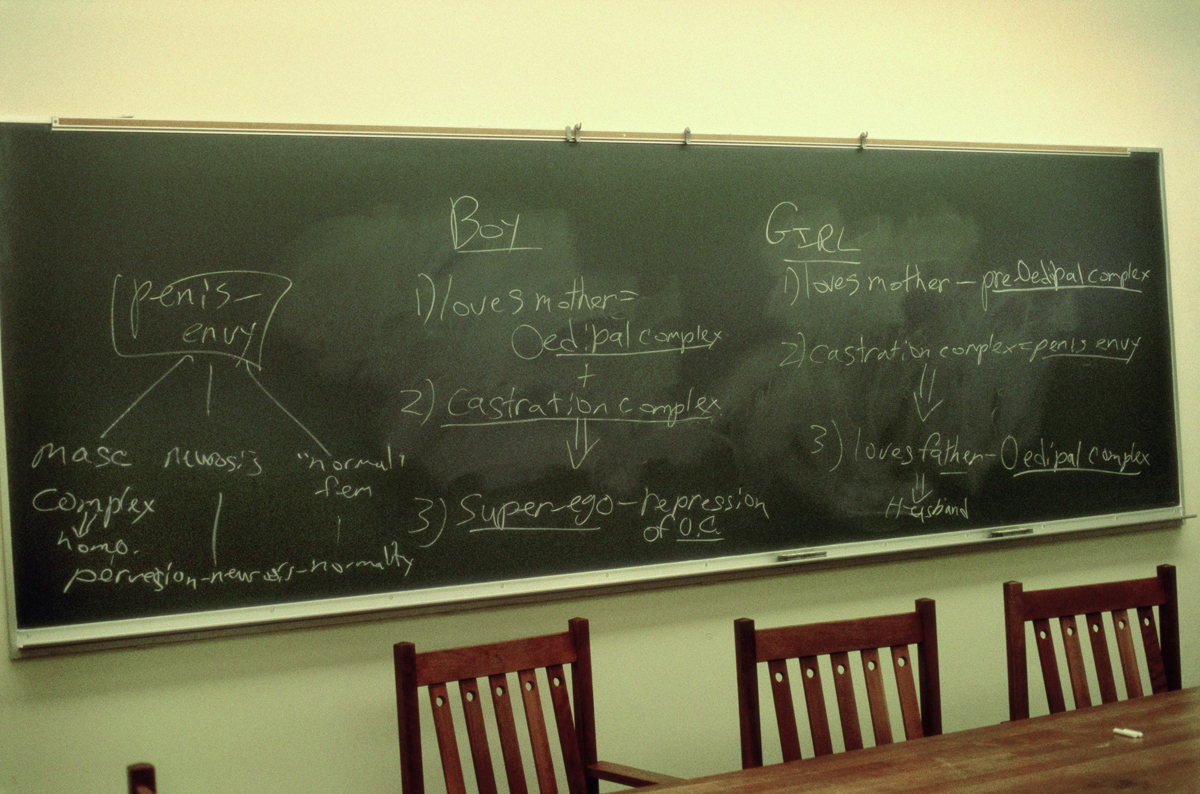 penis-
envy
masc neurosis "normal"
fem
complex
homo.
pervesion-neurosis-normalty
BOY
1) loves mother=
Oedipal complex
+
2) castration complex
3) Super-ego-repression
of O.C.
GIRL
1) loves mother - preOedipal complex
2) castration complex=penis envy
3) loves father- Oedipal complex
Husband